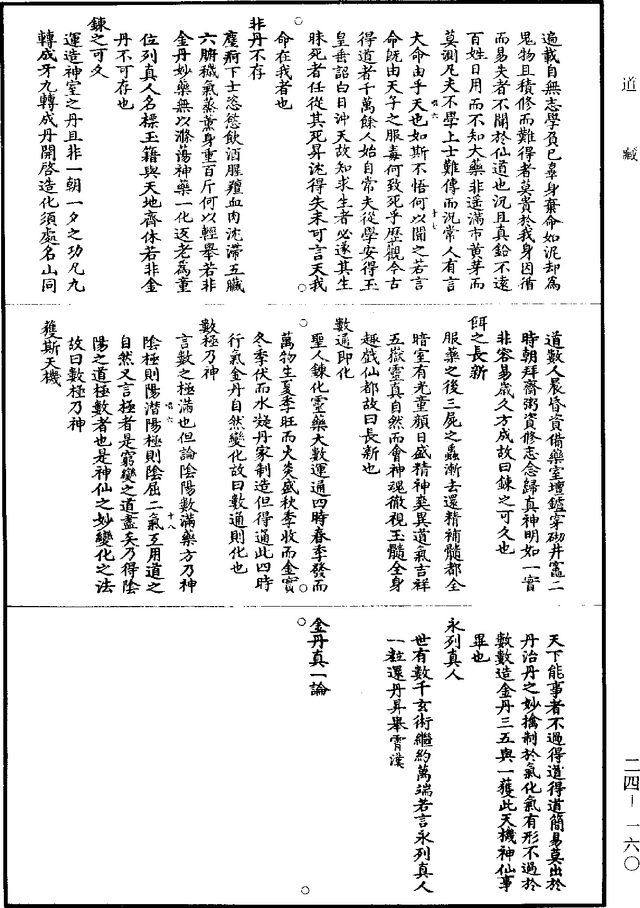 道藏
遍載自無志學負己辜身棄命如泥却爲
鬼物且積修而難得者莫貴於我身因循
而易失者不聞於仙道也況且真鉛不遠
百姓日用而不知大藥非遥滿市黄茅而
莫測凡夫不學上士難傳而況常人有言
大命由乎天也如斯不悟何以聞之若言
命旣由天子之服毒何致死乎歷觀今古
得道者千萬餘人始自常夫從學安得玉
皇垂詔白日沖天故知求生者必遂其生
昧死者任從其死昇沈得失未可言天我
命在我者也
非丹不存
塵痾下士恣慾飲酒腥羶血肉沈滯五臓
六腑穢氣蒸薰身重百斤何以輕舉若非
金丹妙藥無以滌蕩神藥一化返老爲童
位列真人名標玉籍與天地齊休若非金
丹不可存也
鍊之可久
運造神室之丹且非一朝一夕之功凡九
轉成牙九轉成丹開啓造化須處名山同
道數人晨昏資備藥室壇鑪穿砌井竈二
時朝拜齋粥資修志念歸真神明如一實
非容易歲久方成故曰鍊之可久也
餌之長新
服藥之後三屍之蟲漸去還精補髓都全
暗室有光童顔日盛精神爽異道氣吉祥
五嶽靈真自然而會神魂徹視玉髓全身
趣戲仙都故曰長新也
數通即化
聖人鍊化靈藥大數運通四時春季發而
萬物生夏季旺而火炎盛秋季收而金實
冬季伏而水凝丹家制造但得通此四時
行氣金丹自然變化故曰數通則化也
數極乃神
言數之極滿也但論陰陽數滿藥方乃神
陰極則陽潛陽極則陰屈二氣互用道之
自然又言極者是窮變之道盡矣乃得陰
陽之道極數者也是神仙之妙變化之法
故曰數極乃神
獲斯天機
天下能事者不過得道得道簡易莫出於
丹治丹之妙擒制於氣化氣有形不過於
數數造金丹三五與一獲此天機神仙事
畢也
永列真人
世有數千玄術繼約萬端若言永列真人
一粒還丹昇舉霄漢
金丹真一論
二四—一六〇